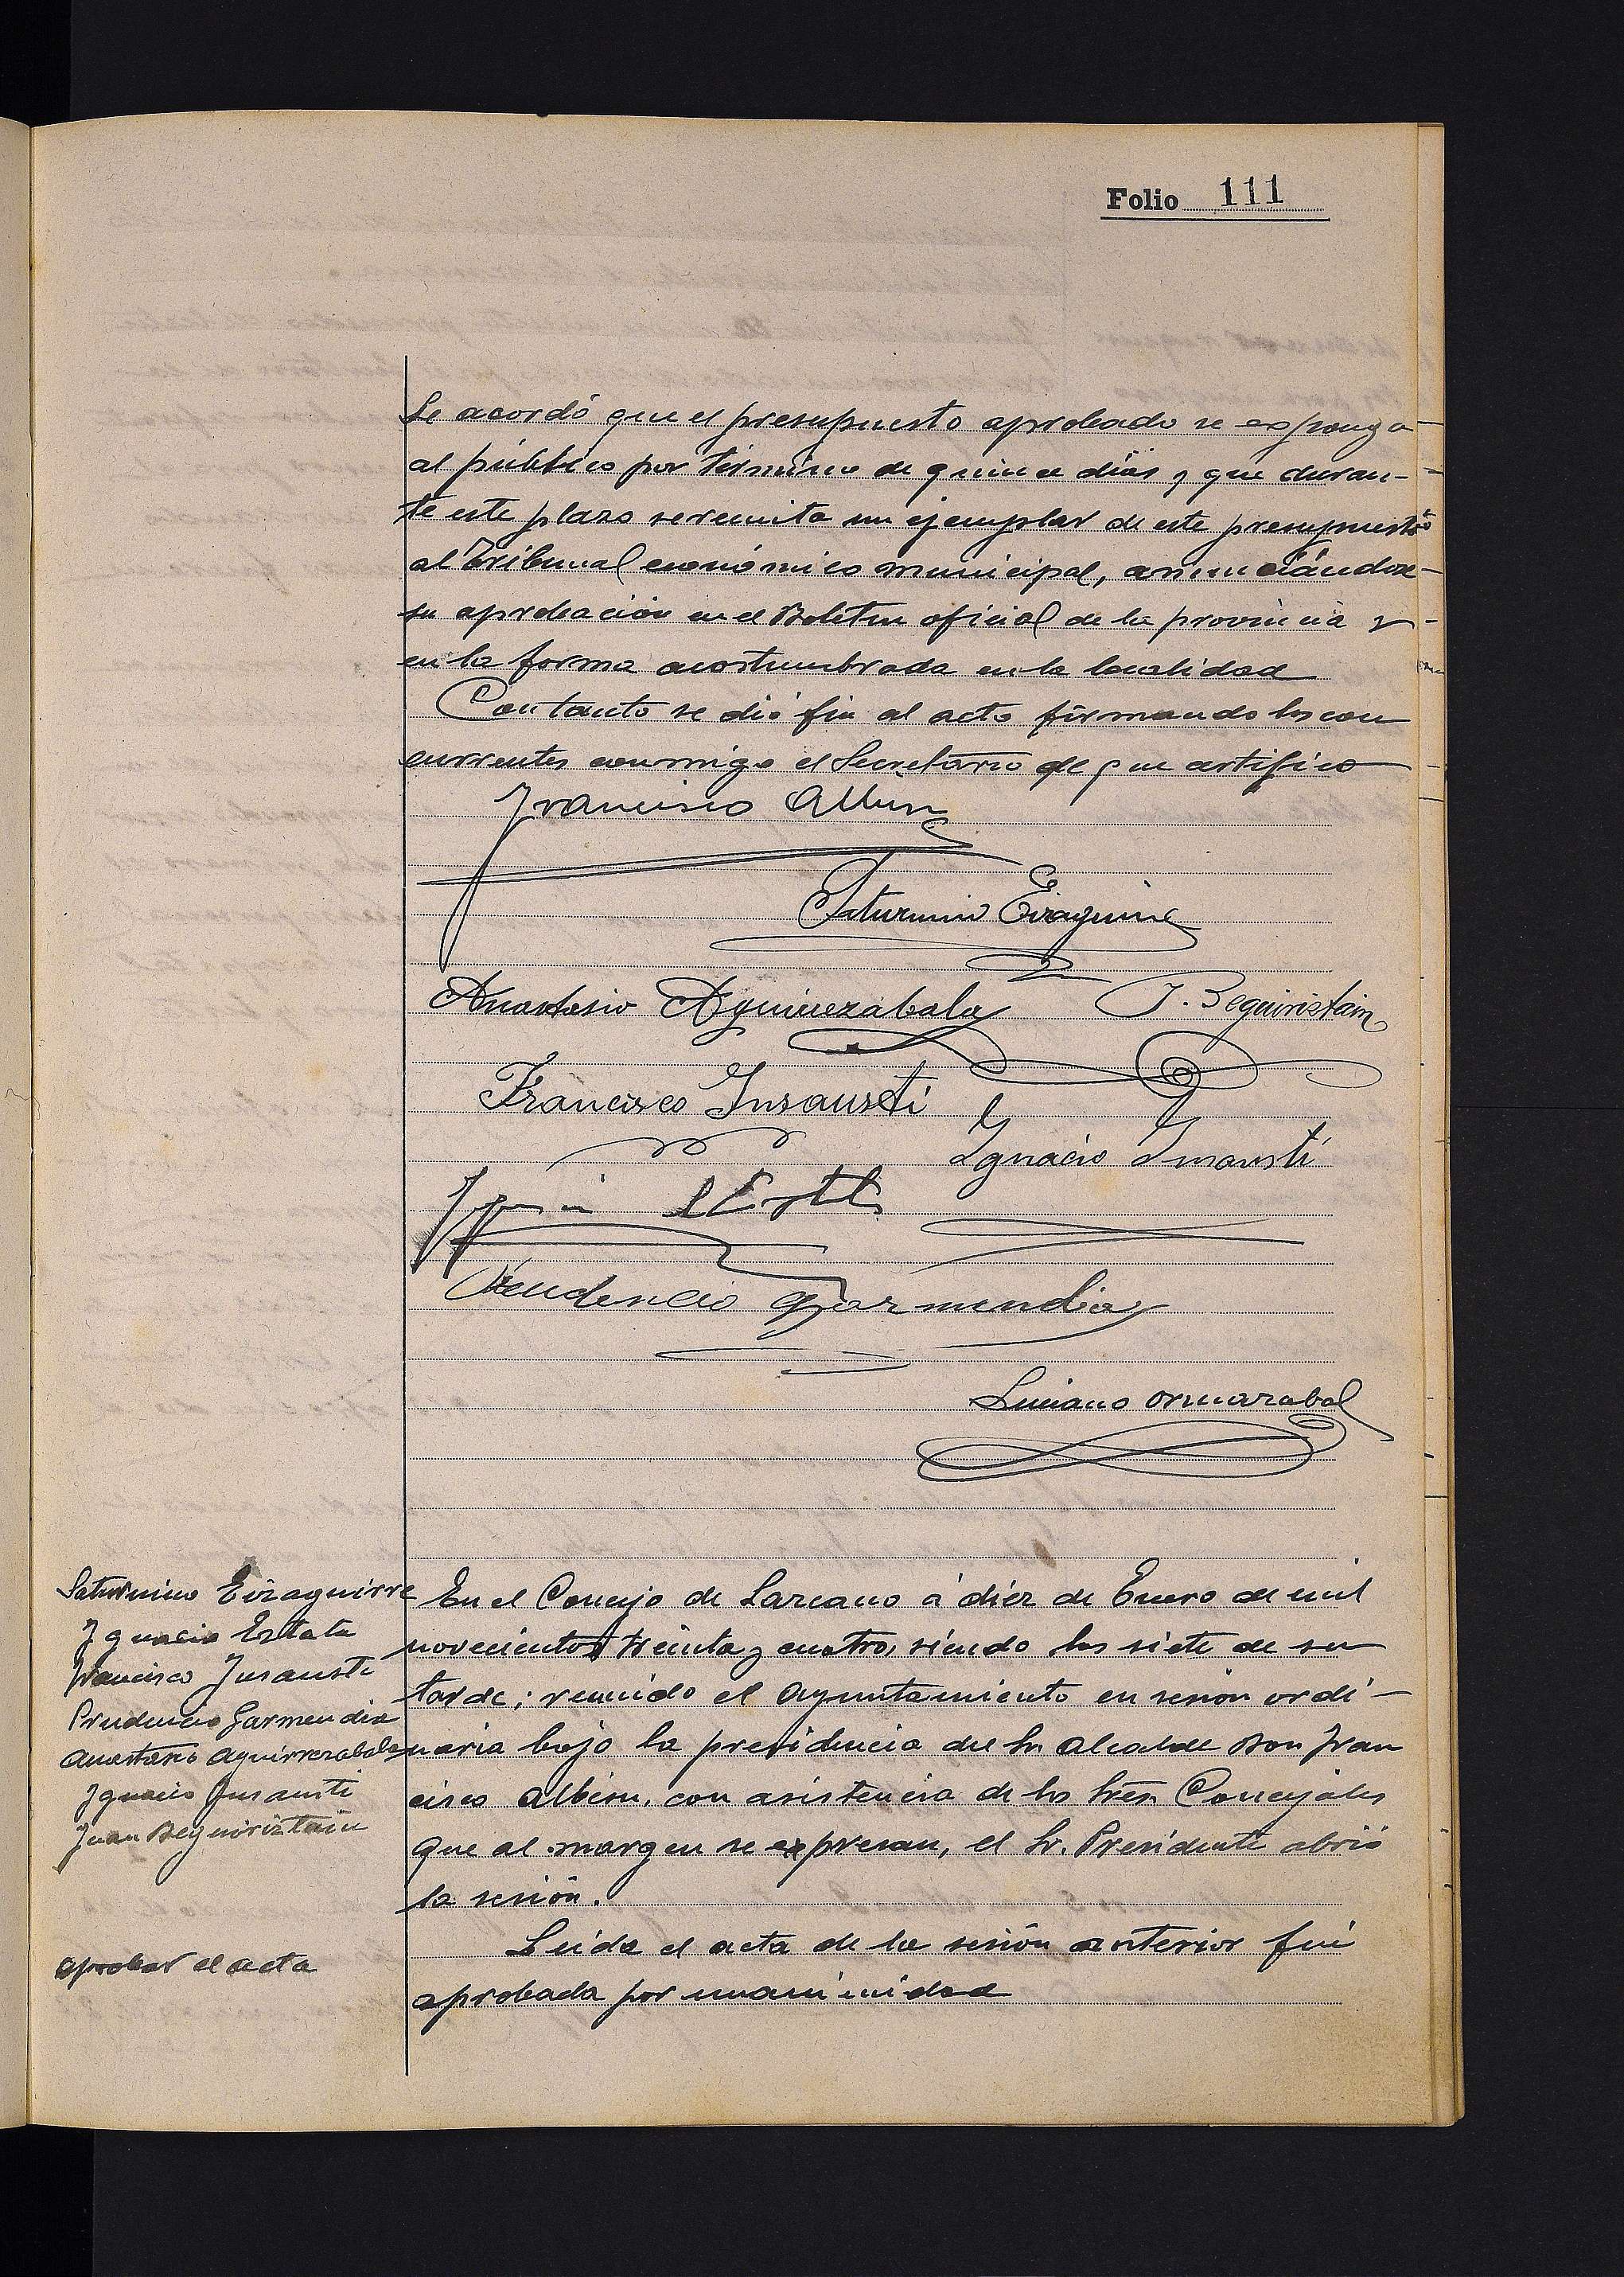 Folio 111
Se acordó que el presupuesto aprobado se exponga
al público por término de quince dias y que duran-
te este plazo se remita un ejemplar de este presupuesto
al Tribunal económico municipal, anunciándose
su aprobación en el Boletin oficial de la provincia y
en la forma acostumbrada en la localidad
Con tanto se dió fin al acto firmando los con
currentes conmigo el Secretario de que certifico
Francisco Albisu
Saturnino Eizaguirre
Anastasio Aguirrezabala J. Beguiristain
Francisco Insausti
Ignacio Insausti
Prudencio Garmendia
Luciano Ormazabal
Saturnino Eizaguirre
Ignacio Estala
Francisco Insausti
Prudencio Garmendia
Anastasio Aguirrezabala
Ignacio Insausti
Juan Beguiriztain
En el Concejo de Lazcano á diez de Enero de mil
novecientos treinta y cuatro, siendo las siete de su
tarde; reunido el Ayuntamiento en sesión ordi-
naria bajo la presidencia del Sr. Alcalde Don Fran
cisco Albisu, con asistencia de los Sres. Concejales
que al margen se expresan, el Sr. Presidente abrió
la sesión.
aprobar el acta
Leida el acta de la sesión anterior fué
aprobada por unanimidad